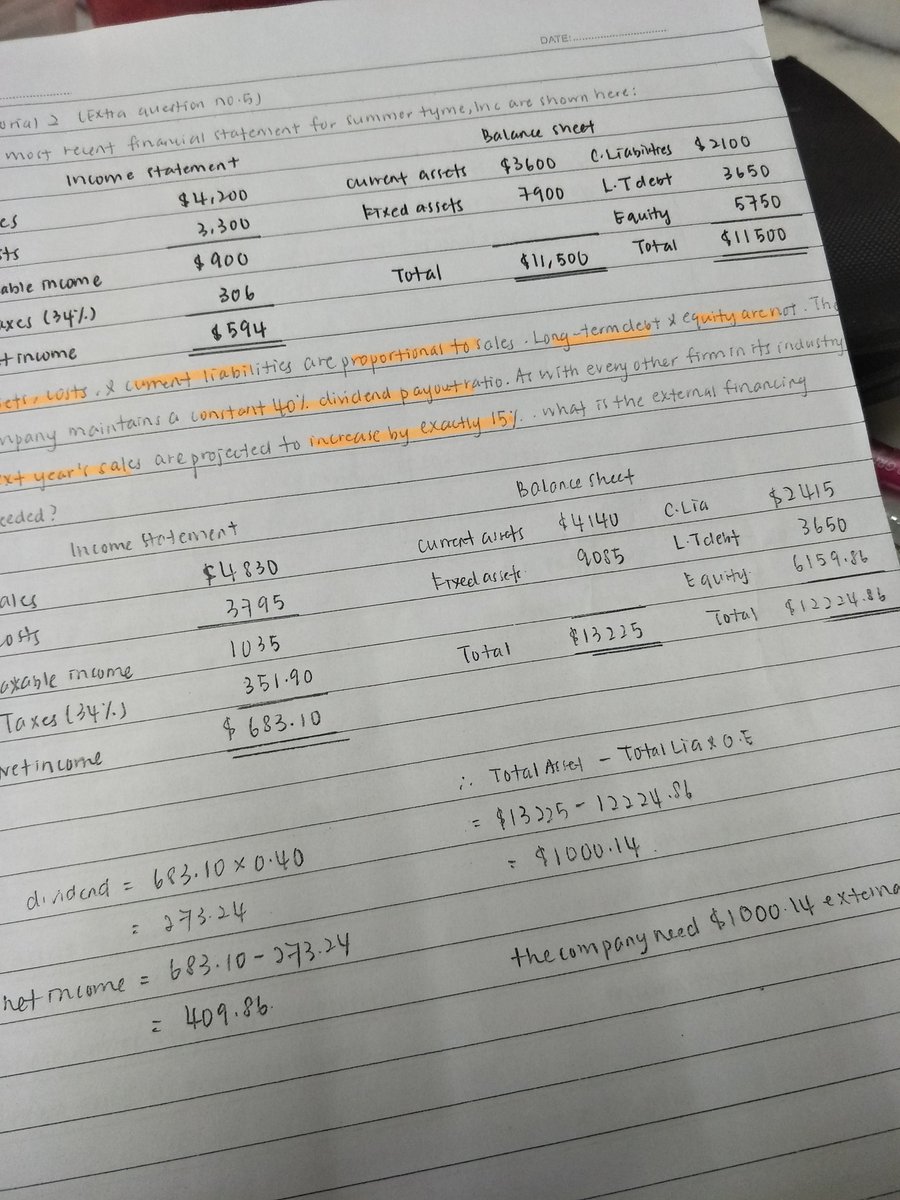 DATE:
orial 2 (Extra question no.5)
most recent financial statement for summer tyme, Inc are shown here:
Income statement Balance sheet
es $4,200 current assets $3600 C.Liabilities $2100
sts 3,300 Fixed assets 7900 L.T debt 3650
able income $900 Equity 5750
axes (34%) 306 Total $11,500 Total $11500
t income $594
sets, costs, & current liabilities are proportional to sales. Long-term debt & equity are not. The
mpany maintains a constant 40% dividend payout ratio. As with every other firm in its industry
ext year's sales are projected to increase by exactly 15%. what is the external financing
eeded?
Income statement Balance sheet
ales $4830 current assets $4140 C.Lia $2415
costs 3795 Fixed assets 9085 L.T debt 3650
axable income 1035 Equity 6159.86
Taxes (34%) 351.90 Total $13225 Total $12224.86
net income $683.10
∴ Total Asset - Total Lia & O.E
= $13225 - 12224.86
= $1000.14.
dividend = 683.10 x 0.40
= 273.24
net income = 683.10 - 273.24
= 409.86.
the company need $1000.14 externa